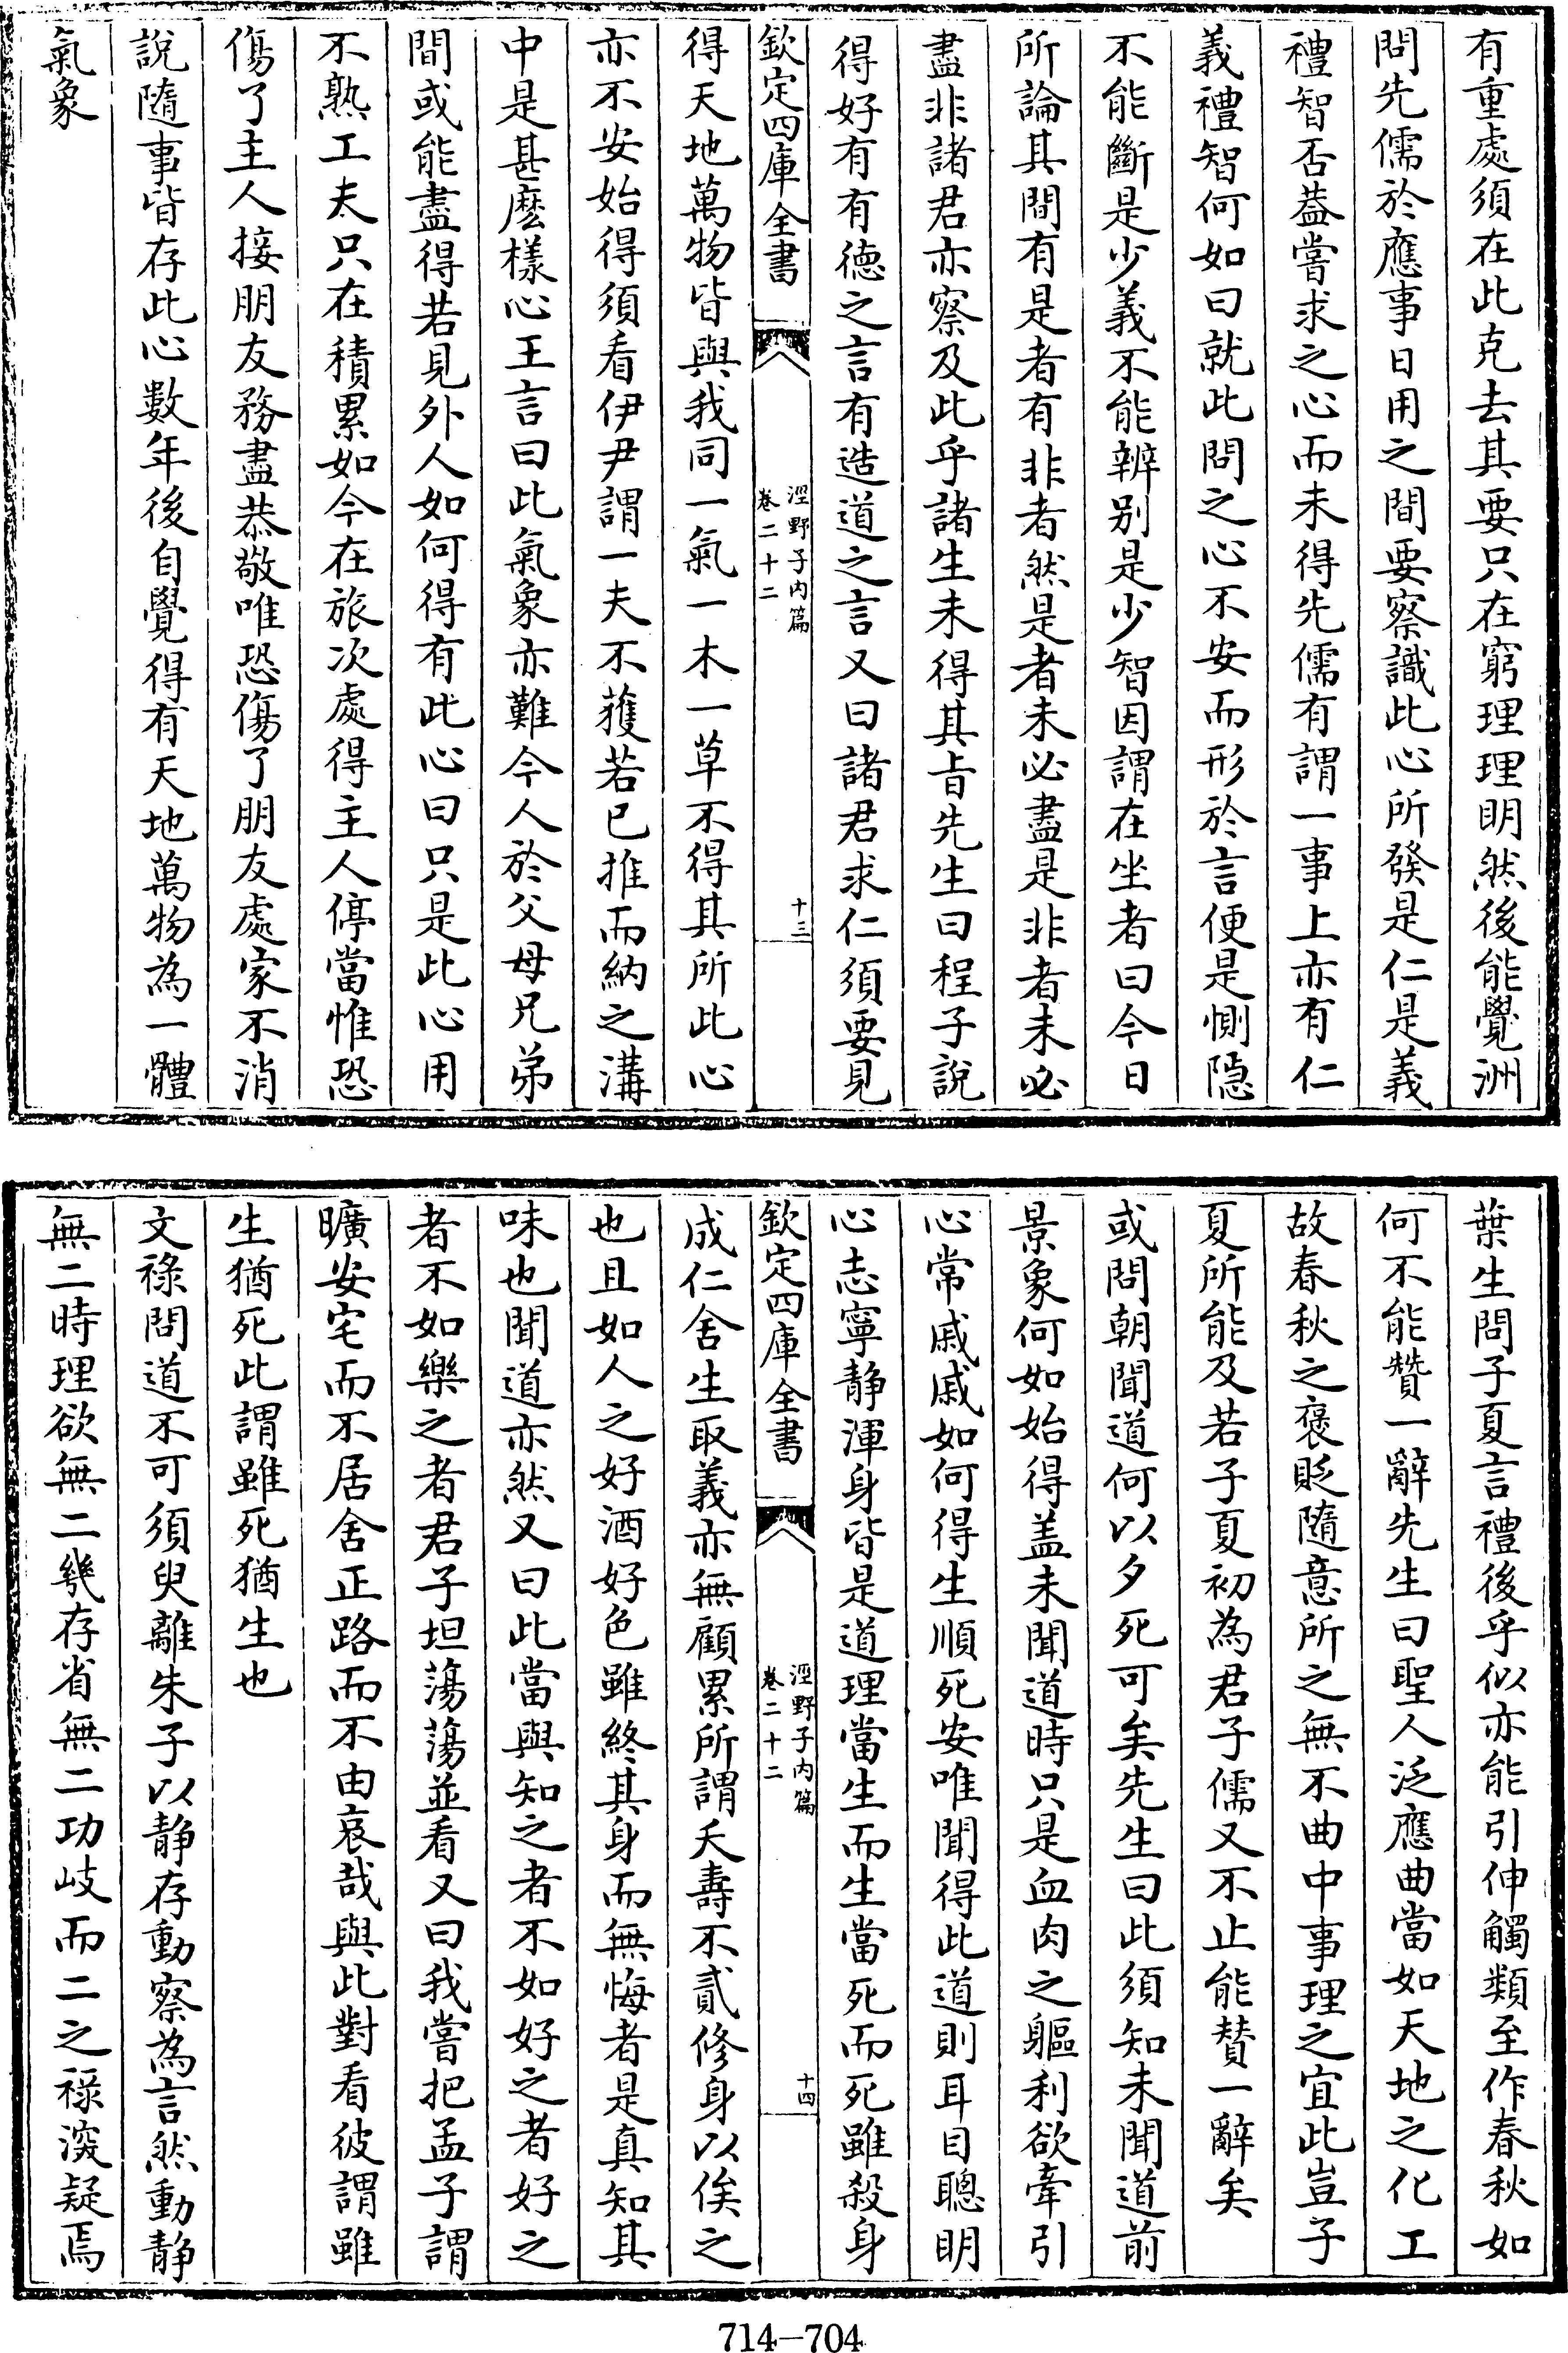 有重處須在此克去其要只在窮理理明然後能覺洲
問先儒於應事日用之間要察識此心所發是仁是義
禮智否葢嘗求之心而未得先儒有謂一事上亦有仁
義禮智何如曰就此問之心不安而形於言便是惻隠
不能斷是少義不能辨别是少智因謂在坐者曰今日
所論其間有是者有非者然是者未必盡是非者未必
盡非諸君亦察及此乎諸生未得其㫖先生曰程子說
得好有有徳之言有造道之言又曰諸君求仁須要見
欽定四庫全書
涇野子内篇
卷二十二
十三
得天地萬物皆與我同一氣一木一草不得其所此心
亦不安始得須看伊尹謂一夫不獲若已推而納之溝
中是甚麽様心王言曰此氣象亦難今人於父母兄弟
間或能盡得若見外人如何得有此心曰只是此心用
不熟工夫只在積累如今在旅次處得主人停當惟恐
傷了主人接朋友務盡恭敬唯恐傷了朋友處家不消
說隨事皆存此心數年後自覺得有天地萬物為一體
氣象
葉生問子夏言禮後乎似亦能引伸觸類至作春秋如
何不能贊一辭先生曰聖人泛應曲當如天地之化工
故春秋之褒貶隨意所之無不曲中事理之宜此豈子
夏所能及若子夏初為君子儒又不止能賛一辭矣
或問朝聞道何以夕死可矣先生曰此須知未聞道前
景象何如始得盖未聞道時只是血肉之軀利欲牽引
心常戚戚如何得生順死安唯聞得此道則耳目聰明
心志寧静渾身皆是道理當生而生當死而死雖殺身
欽定四庫全書
涇野子内篇
卷二十二
十四
成仁舍生取義亦無顧累所謂夭壽不貳修身以俟之
也且如人之好酒好色雖終其身而無悔者是真知其
味也聞道亦然又曰此當與知之者不如好之者好之
者不如樂之者君子坦蕩蕩並看又曰我嘗把孟子謂
曠安宅而不居舍正路而不由哀哉與此對看彼謂雖
生猶死此謂雖死猶生也
文祿問道不可須臾離朱子以静存動察為言然動静
無二時理欲無二幾存省無二功歧而二之祿深疑焉
714-704